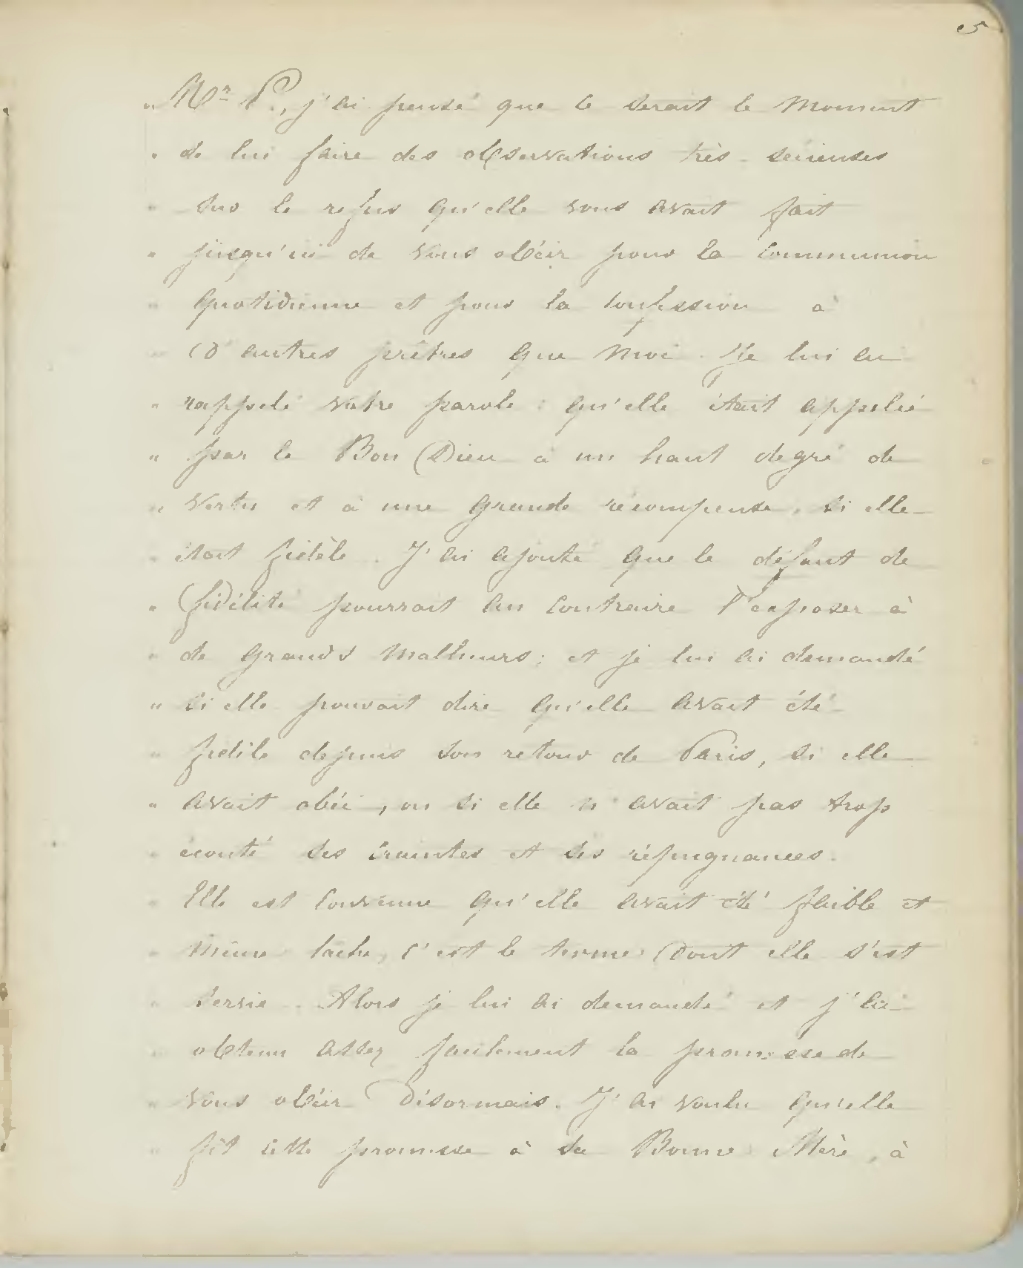 5
" Mr P., j'ai pensé que ce serait le moment
" de lui faire des observations très-serieuses
" sur le refus qu'elle vous avait fait
" jusqu'ici de vous obéir pour la communion
" quotidienne et pour la confession à
" d'autres prêtres que moi. Je lui ai
" rappelé votre parole : qu'elle était appelée
" par le Bon Dieu à un haut degré de
" vertu et à une grande récompense, si elle
" était fidèle. J'ai ajouté que le défaut de
" fidélité pourrait au contraire l'exposer à
" de grands malheurs ; et je lui ai demandé
" si elle pouvait dire qu'elle avait été
" fidèle depuis son retour de Paris, si elle
" avait obéi, ou si elle n'avait pas trop
" écouté ses craintes et ses répugnances.
" Elle est convenue qu'elle avait été faible et
" même lâche, c'est le terme dont elle s'est
" servie. Alors je lui ai demandé et j'ai
" obtenu assez facilement la promesse de
" vous obéir désormais. J'ai voulu qu'elle
" fît cette promesse à sa Bonne Mère, à